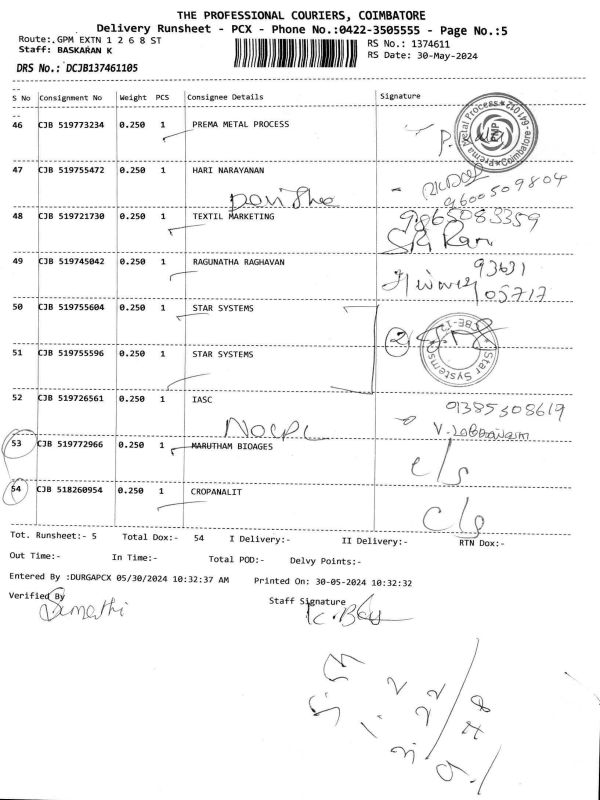 THE PROFESSIONAL COURIERS, COIMBATORE
Delivery Runsheet - PCX - Phone No.:0422-3505555 - Page No.:5
Route:.GPM EXTN 1 2 6 8 ST
RS No.: 1374611
Staff: BASKARAN K
RS Date: 30-May-2024
DRS No.: DCJB137461105
S No Consignment No Weight PCS Consignee Details Signature
46 CJB 519773234 0.250 1 PREMA METAL PROCESS
Prema Metal Process * 641012 Coimbatore PMP
47 CJB 519755472 0.250 1 HARI NARAYANAN
9600509804
48 CJB 519721730 0.250 1 TEXTIL MARKETING
9865083359
Sri Ram
49 CJB 519745042 0.250 1 RAGUNATHA RAGHAVAN
93631
05717
50 CJB 519755604 0.250 1 STAR SYSTEMS
2
Star Systems CBE-12
51 CJB 519755596 0.250 1 STAR SYSTEMS
52 CJB 519726561 0.250 1 IASC
01385308619
53 CJB 519772966 0.250 1 MARUTHAM BIOAGES
c/s
54 CJB 518260954 0.250 1 CROPANALIT
c/s
Tot. Runsheet:- 5 Total Dox:- 54 I Delivery:- II Delivery:- RTN Dox:-
Out Time:- In Time:- Total POD:- Delvy Points:-
Entered By :DURGAPCX 05/30/2024 10:32:37 AM Printed On: 30-05-2024 10:32:32
Verified By
Staff Signature
Sumathi
K. Bas